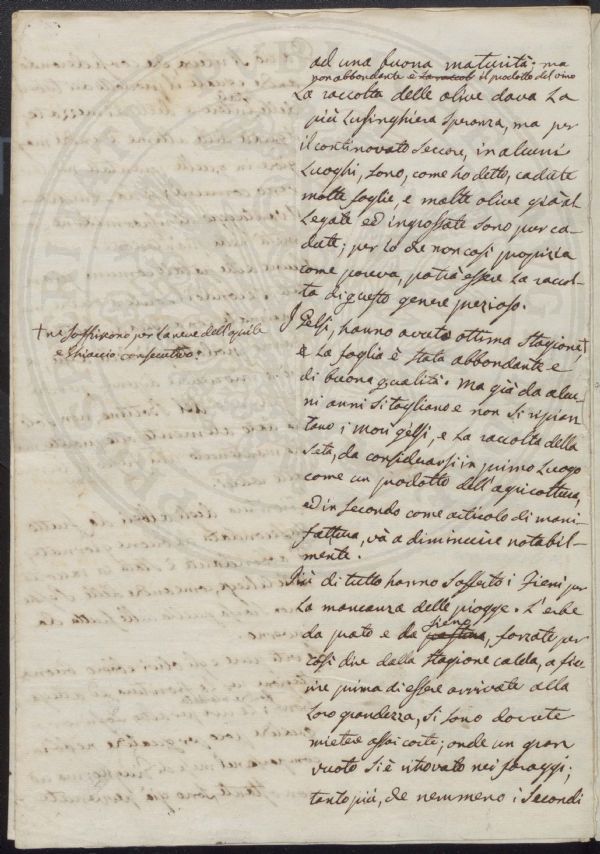 ad una buona maturità; ma
non abbondante è la raccol il prodotto del vino
La raccolta delle olive dava La
più Lusinghiera Speranza, ma per
il continovato seccore, in alcuni
Luoghi, sono, come ho detto, cadute
molte foglie, e molte olive già al
Legate ed ingrossate sono pur ca-
dute; per lo che non così propizia
come pareva, potrà essere La raccol-
ta di questo genere prezioso.
I Gelsi, hanno avuto ottima Stagione,†
† ne soffrirono per la neve dell'aprile
e Ghiaccio consecutivo.
e La foglia è stata abbondante e
di buona qualità. Ma già da alcu-
ni anni si tagliano e non si ripian
tano i Mori gelsi, e La raccolta della
Seta, da considerarsi in primo Luogo
come un prodotto dell'agricoltura,
ed in secondo come articolo di mani-
fattura, và a diminuire notabil-
mente.
Più di tutto hanno sofferto i Fieni per
La mancanza delle piogge. L'erbe
da prato e da fieno, forzate per
così dire dalla Stagione calda, a fio
rire prima di essere arrivate alla
Loro grandezza, si sono dovute
mietere assai corte; onde un gran
vuoto si è ritrovato nei foraggi;
tanto più, che nemmeno i Secondi